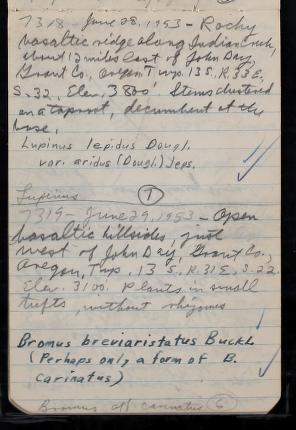 7318 - June 28, 1953 - Rocky
basaltic ridge along Indian Creek,
about 12 miles east of John Day,
Grant Co., Oregon Twp. 13 S, R. 33 E,
S. 32. Elev. 3800'. Stems clustered
on a taproot, decumbent at the
base.
Lupinus lepidus Dougl.
var. aridus (Dougl.) Jeps.
Lupinus 7
7319 - June 29, 1953 - Open
basaltic hillsides, just
west of John Day, Grant Co.,
Oregon, Twp. 13 S, R. 31 E, S. 22.
Elev. 3100. Plants in small
tufts, without rhizomes
Bromus breviaristatus Buckl.
(Perhaps only a form of B.
carinatus)
Bromus aff carinatus 6